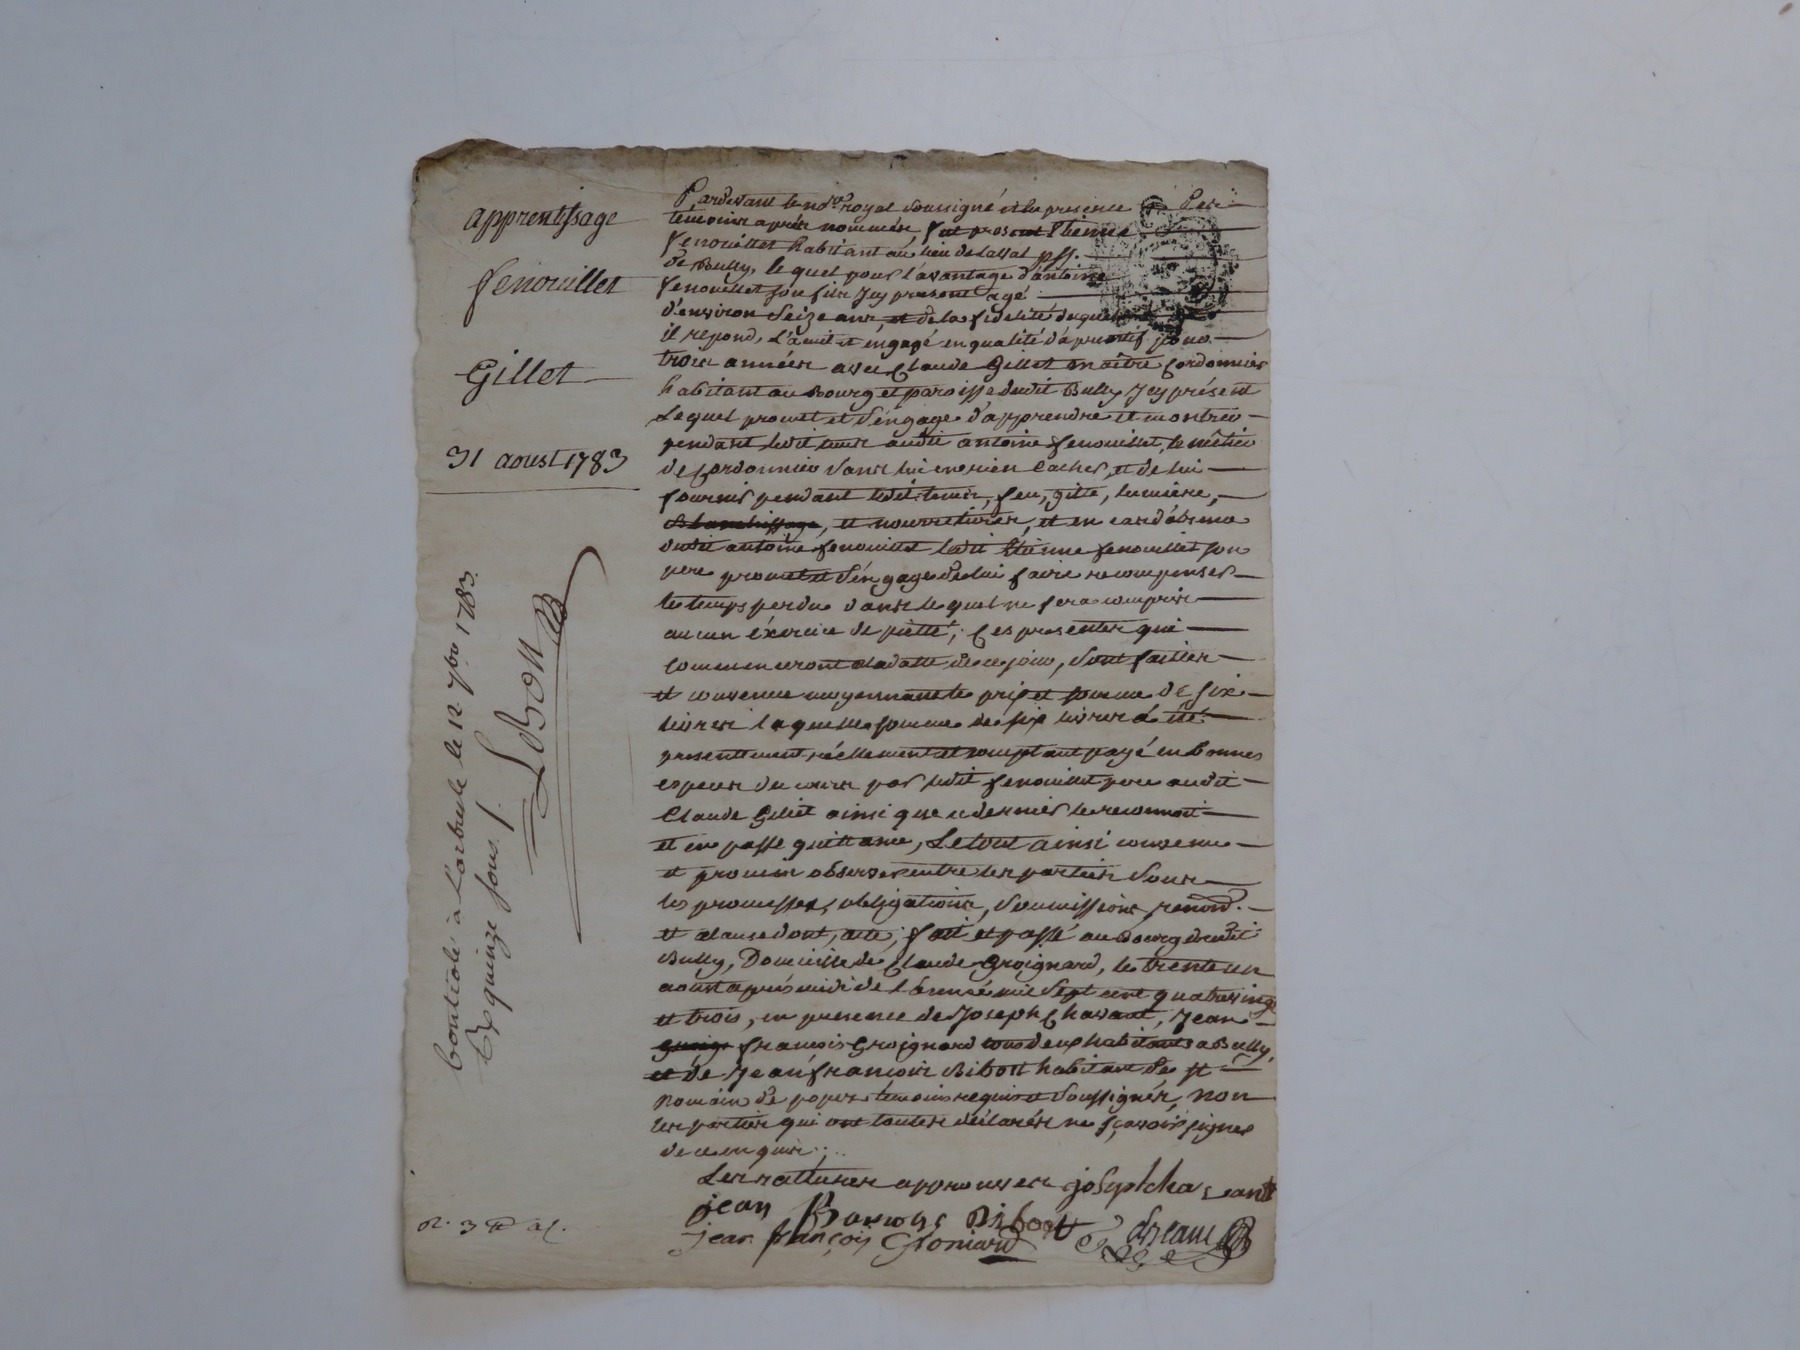 apprentissage
fenouillet
Gillet
31 aoust 1783
Pardevant le no.re royal soussigné et la presence
temoins apres nommés, fut present Etienne
fenouillet habitant au lieu de Lassal pss.
de Bully, lequel pour l'avantage d'antoine
fenouillet son fils Jcy present agé
d'environ Seize ans, et de la fidelité duquel
il repond, L'a mit et engagé en qualité d'aprentif pour
trois années avec Claude Gillet maître Cordonnier
habitant au Bourg et paroisse dudit Bully Jcy présent
Lequel promet et s'engage d'apprendre et montrer
pendant ledit tems audit antoine fenouillet, le métier
de Cordonnier sans lui en rien Cacher, et de lui
fournir pendant ledit tems, feu, gitte, lumiere,
Blanchissage, et nourritures, et en cas d'absence
dudit antoine fenouillet ledit Etienne fenouillet son
pere promet et s'engage de lui faire recompenser
le temps perdu dans lequel ne sera compris
aucun éxercice de pietté; Ces presentes qui
commenceront a la datte de ce jour, sont faittes
et convenue moyennant le prix et somme de six
livres laquelle somme de six livres a été
presentement, réellement et comptant payé en bonnes
especes du cours par ledit fenouillet pere audit
Claude Gillet ainsi que ce dernier le reconnoit
et en passe quittance, Le tout ainsi convenu
et promis observer entre les parties sous
les promesses, obligations, soumissions, renon.
et clause dont, acte; fait et passé au Bourg dudit
Bully, Domicille de Claude Groignard, le trente un
aoust après midi de l'année mil sept cent quatre vingt
et trois, en presence de Joseph Chavant, Jean
françois Groignard tous deux habitants a Bully,
et de Jean françois Bibost habitant de st
Romain de popes temoins requis et soussignés, non
les parties qui ont toutes déclarés ne sçavoir signer
de ce enquis;..
Les rattures approuvees josept chavant
jean francois Bibost
jean françois Groniard
Contiolé à L'arbresle le 12 7bre 1783.
quinze sous